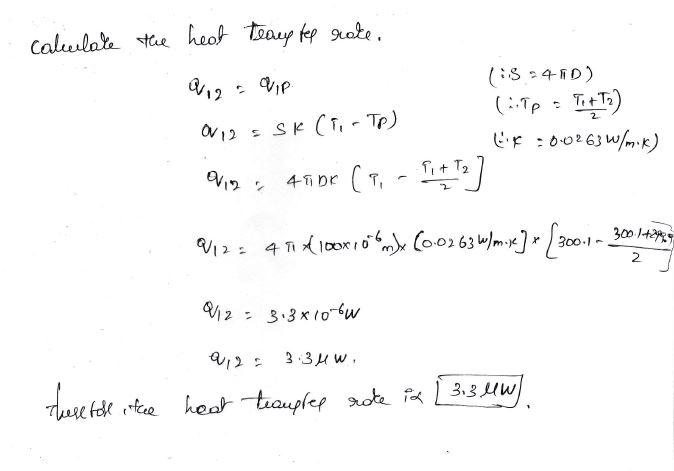 calculate the heat transfer rate.
q12 = q1P (∵S = 4πD)
(∴TP = T1+T2/2)
q12 = SK (T1 - TP) (∵K = 0.0263 W/m.K)
q12 = 4πDK (T1 - T1+T2/2]
q12 = 4π×(100×10^-6 m)× (0.0263 W/m.K] × [300.1 - 300.1+299.9/2]
q12 = 3.3×10^-6 W
q12 = 3.3 μW.
therefore, the heat transfer rate is [3.3 μW].